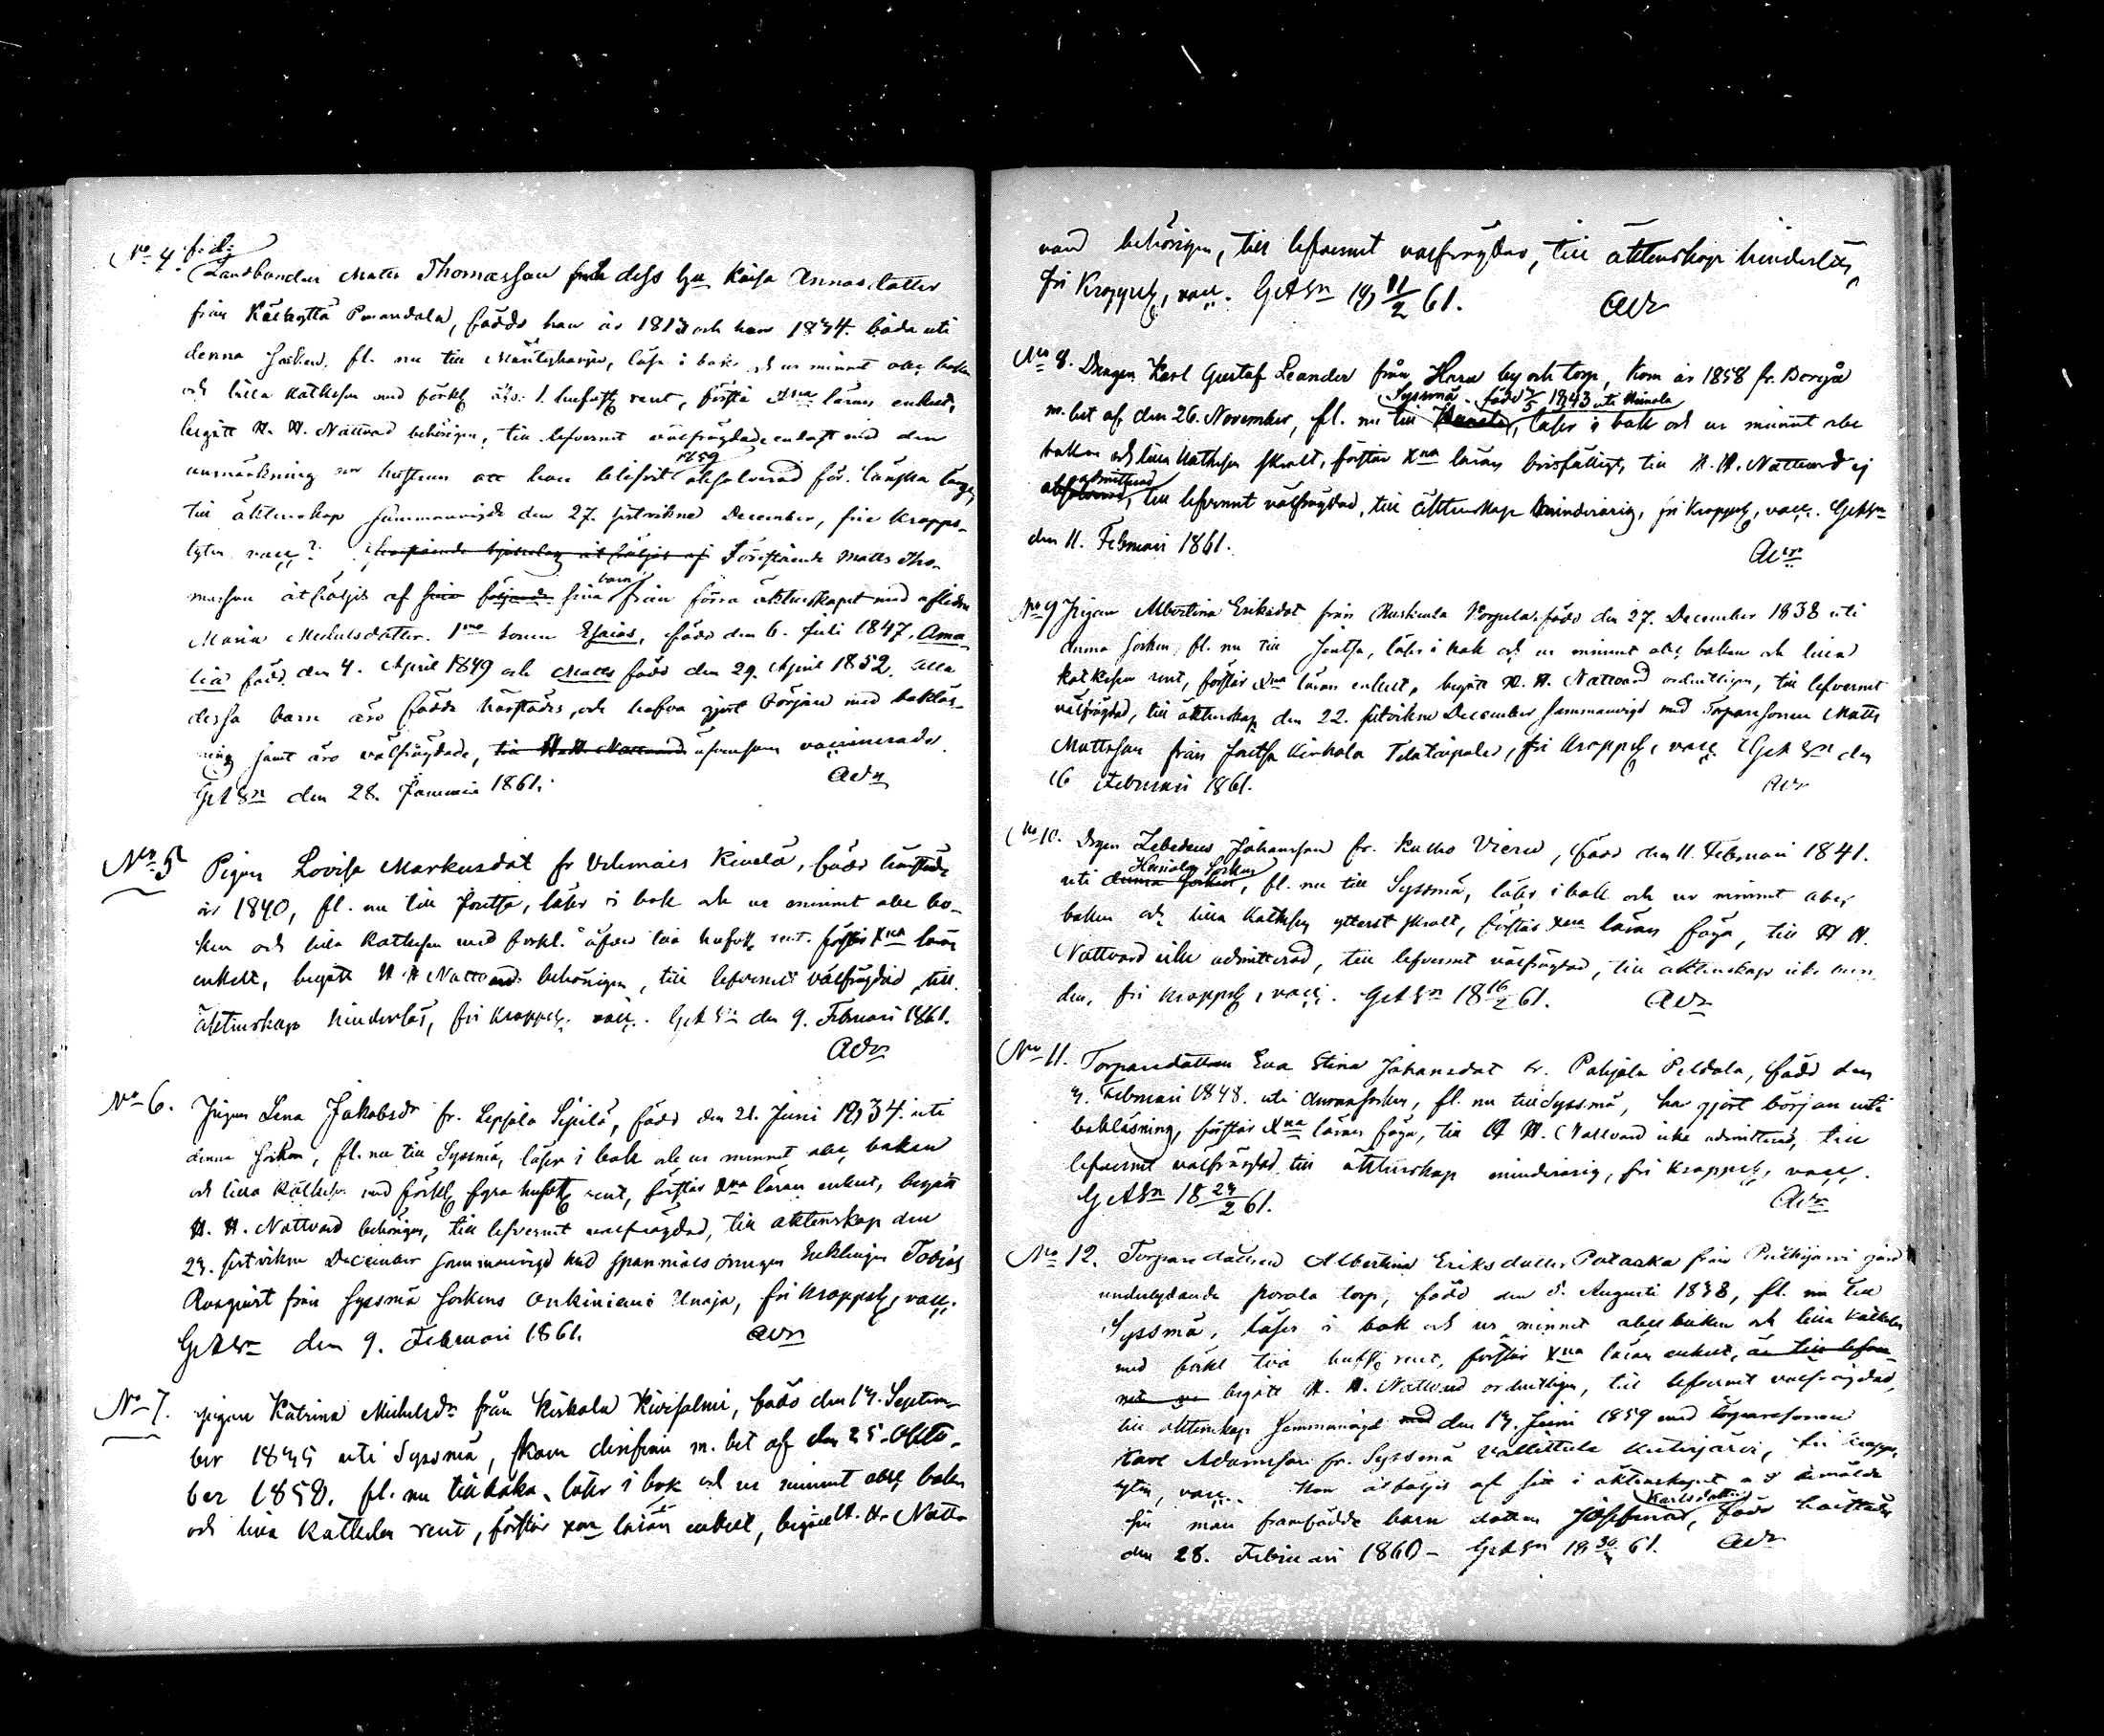 No 4. f. d.
Landbonden Matts Thomasson dess hu Kaisa Annasdotter
från Käikyttä Pmandala, födde han år 1813 och hon 1834. båda uti
denna socken, fl. nu till Mäntyharju, läsa i bok och ur minnet abc boken
och lilla kathesen med förkl. 1. hufst. rent, förstå Xna läran enkelt,
begått H. H. Nattvard behörigen, till lefvernet välfrägdade enligt med den
anmärkning att han blifvit 1859 absolverad för
till äktenskap sammanvigde den 27. sistvikne December, frie kropps-
lyten vacc. Förestående Matts Tho-
masson åtföljes af sina barn från förra äktenskapet med aflidna
Maria Michelsdotter. 1mo sonen Esaias, född den 6. Juli 1847, Ama-
lia född den 4. April 1849 och Matts född den 29. April 1852. Alla
dessa barn äro födde härstädes, och hafva gjort början med bokläs-
ning samt äro välfrägdade, till H H Nattvard äfvensom vaccinerade.
GAHn den 28. Januarii 1861.
No 5 Pigan Lovisa Markusdot fr Vehmais Kivelä, född härstädes
år 1840, fl. nu till Joutsa, läser i bok och ur minnet abc bo-
ken och lilla kathesen med förkl. äfver två hufst. rent. förstår Xna läran
enkelt, begått H H Nattvard behörigen, till lefvernet välfrägdad, till
äktenskap hinderlös, fri kroppsl. vacc. den 9. Februari 1861.
No 6. Pigan Lena Jakobsdr fr. Leppälä Sipilä, född den 21. Juni 1834. uti
denna socken, fl. nu till Syssmä, läser i bok och ur minnet abc boken
och lilla kathesen med förkl. fyra hufst. rent, förstår Xna läran enkelt, begått
H. H. Nattvard behörigen, till lefvernet välfrägdad, till äktenskap den
sistvikne December sammanvigd med spannmåls drängen Enklingen Tobias
Rosqvist från Syssmä sockens Onkiniemi Unaja, fri kroppsl., vacc.
den 9. Februari 1861.
No 7. Pigan Katrina Michelsdr från Kirkola Kivisalmi, född den 14. Septem-
ber 1835 uti Syssmä, kom därifrån m. bet af den 25. Octo-
ber 1858. fl. nu tillbaka, läser i bok och ur minnet abc boken
och lilla Kathesen rent, förstår xna läran enkelt, begått H. H. Natt-
vard behörigen, till lefvernet välfrägdad, till äktenskap hinderlös,
fri kroppsl., vacc. 18 11/2 61.
No 8. Drengen Karl Gustaf Leander från Hara by och torp, kom år 1858 fr. Borgå
Syssmä. född 1843 uti Heinola
m. bet af den 26. November, fl. nu till läser i bok och ur minnet abc
boken och lilla kathesen skralt, förstår Xna läran bristfälligt, till H. H. Nattvard ej
admitterad
absolverad, till lefvernet välfrägdad, till äktenskap minderårig, fri kroppsl., vacc.
den 11. Februari 1861.
No 9 Pigan Albertina Eriksdot från Ruskeala Vorpula, född den 27. December 1838 uti
denna socken, fl. nu till Joutsa, läser i bok och ur minnet abc boken och lilla
kathesen rent, förstår Xna läran enkelt, begått H. H. Nattvard ordentligen, till lefvernet
välfrägdad, till äktenskap den 22. sistvikne December sammanvigd med Torparesonen Matts
Mattsson från Joutsa Kirkola fri kroppsl., vacc. den
16 Februari 1861.
No 10. Drgen Zebedeus Johansson fr. Kutho Vieru, född den 11. Februari 1841.
Heinola Socken
uti denna socken, fl. nu till Syssmä, läser i bok och ur minnet abc,
boken och lilla kathesen ytterst skralt, förstår xna läran föga, till H H.
Nattvard icke admitterad, till lefvernet välfrägdad, till äktenskap icke
fri kroppsl., vacc. 18 16/2 61.
No 11. Torparedottern Eva Stina Johansdot fr. Pohjola Peldola, född den
4. Februari 1848. uti denna socken, fl. nu till Syssmä, har gjort början uti
bokläsning, förstår Xna läran föga, till H H. Nattvard icke admitterad, till
lefvernet välfrägdad, till äktenskap minderårig, fri kroppsl., vacc.
18 24/2 61.
No 12. Torparedottren Albertina Eriksdotter Potaska från Pulkijärvi gård
underlydande Porola torp, född den 5. Augusti 1838, fl. nu till
Syssmä, läser i bok och ur minnet abc boken och lilla kathesen
med förkl två hufst. rent, förstår Xna läran enkelt, är till lefver-
net begått H. H. Nattvard ordentligen, till lefvernet välfrägdad,
till äktenskap sammanvigd med den 14. Juni 1859 med torparesonen
Karl Adamsson fr. Syssmä Vallittula Kutujärvi, fri kropps-
lyten, vacc. Hon åtföljes af sitt i äktenskapet med bemälde
Karlsdotter
sin man framfödde barn dottren Josefina, född härstädes
den 28. Februari 1860 - 61.